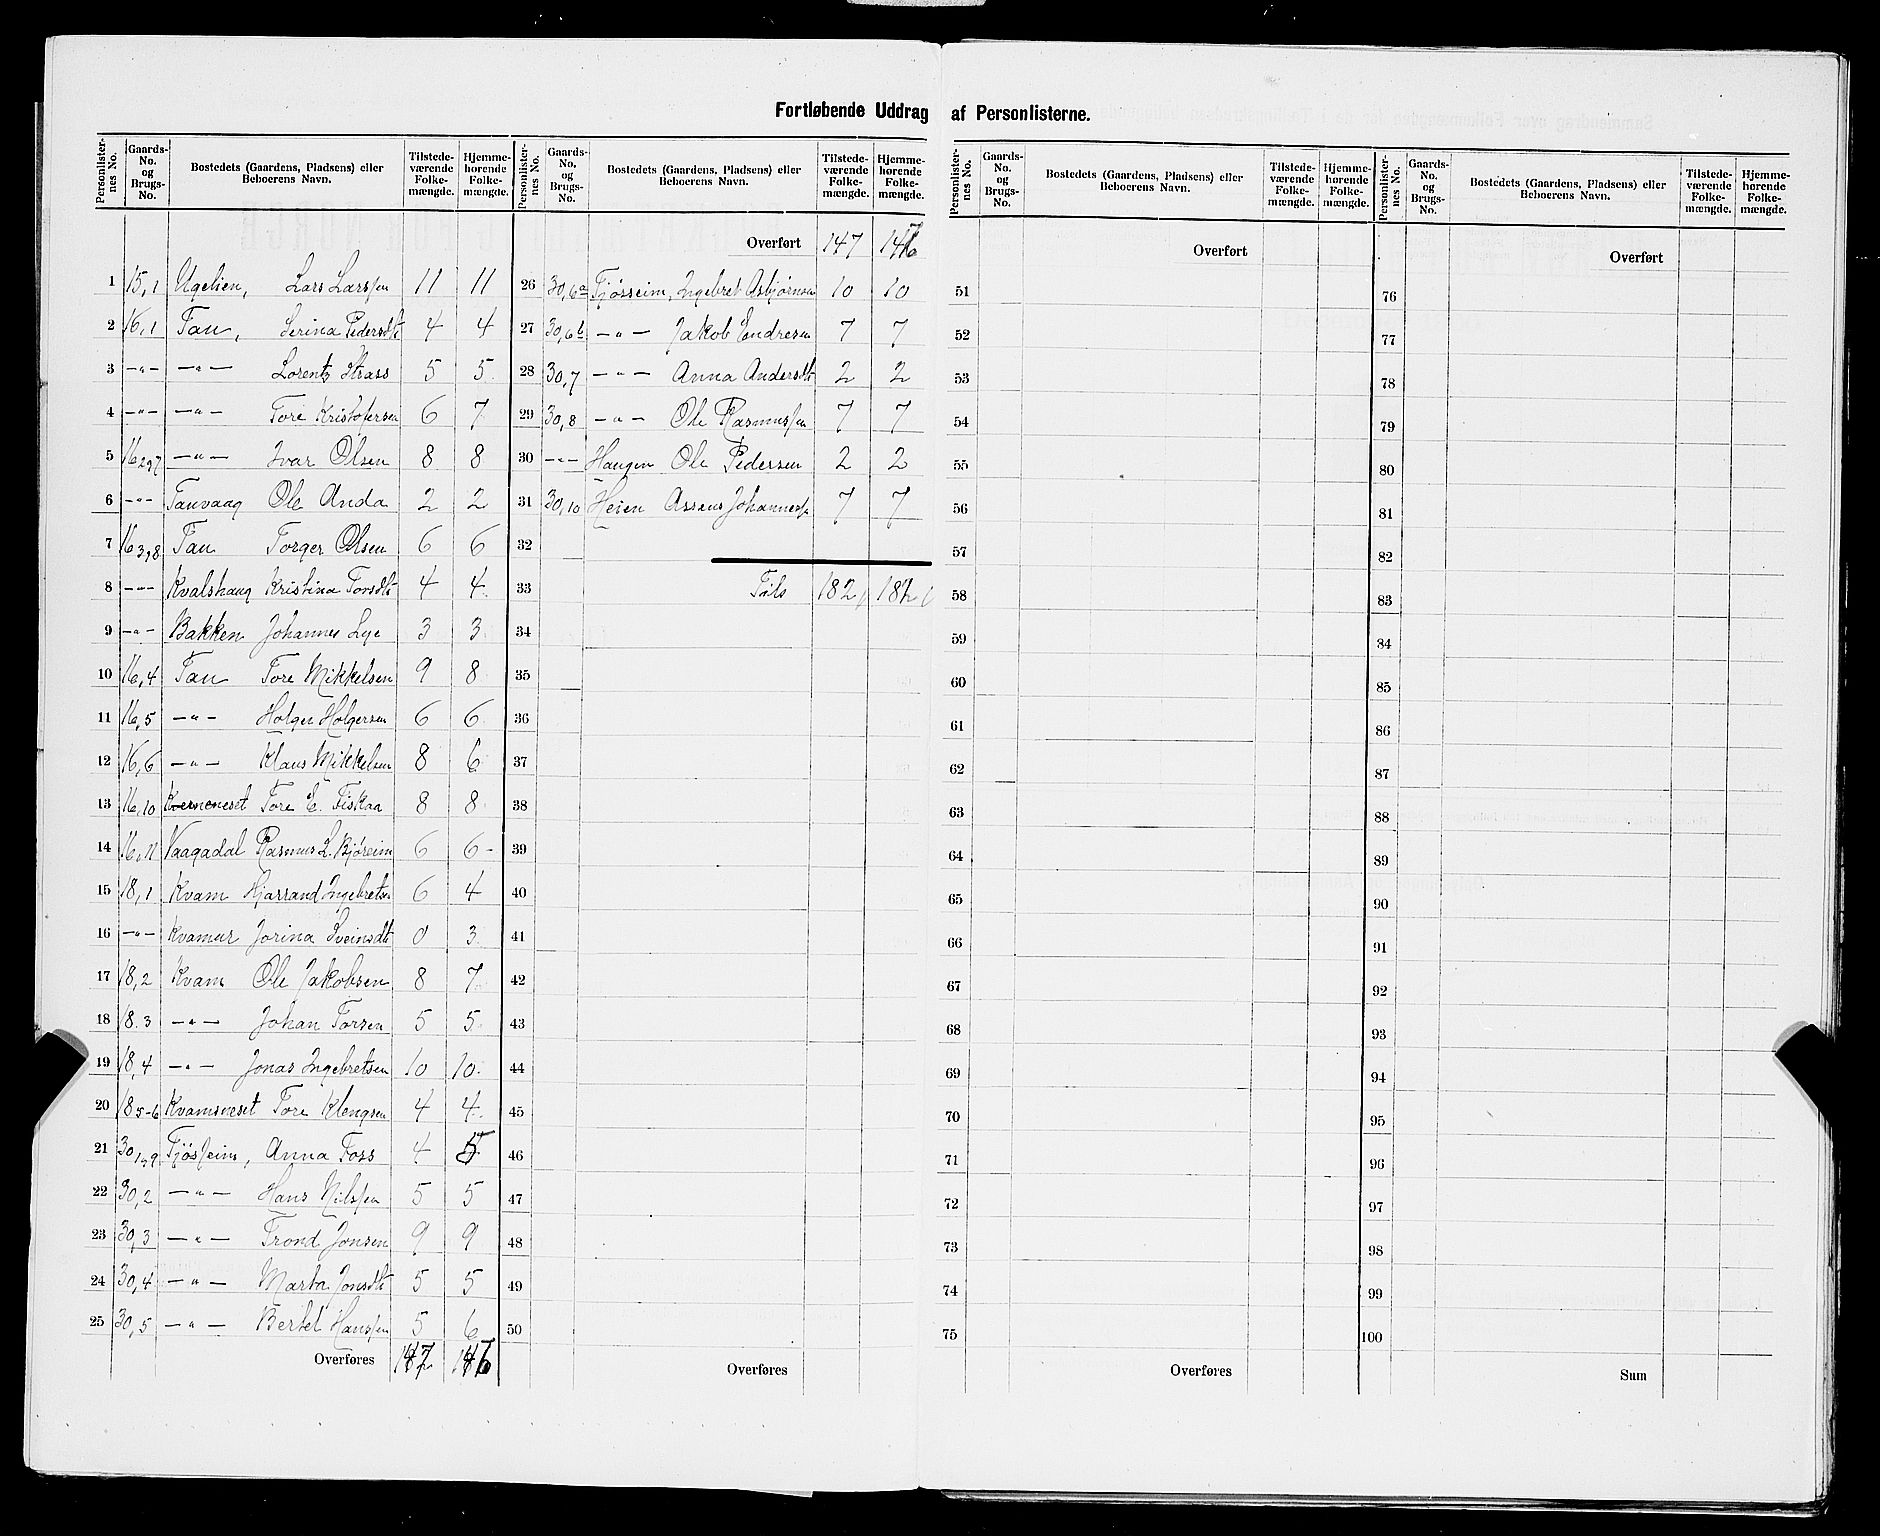 Fortløbende Uddrag af Personlisterne.
Personlister-nes No. | Gaards-No. og Brugs-No. | Bostedets (Gaardens, Pladsens) eller Beboerens Navn. | Tilstede-værende Folke-mængde. | Hjemme-hørende Folke-mængde.
1 15,1 Ugelien, Lars Larssen 11 11
2 16,1 Tau, Serina Pedersdt 4 4
3 -"- -"- Lorentz Strass 5 5
4 -"- -"- Tore Kristofersen 6 7
5 16 2,7 -"- Ivar Olsen 8 8
6 -"- Tauvaag Ole Anda 2 2
7 16 3,8 Tau Torger Olsen 6 6
8 -"- Kvalshaug Kristina Torsdt 4 4
9 -"- Bakken Johannes Lye 3 3
10 16,4 Tau Tore Mikkelsen 9 8
11 16,5 -"- Holger Holgersen 6 6
12 16,6 -"- Klaus Mikkelsen 8 6
13 16,10 Kvernneset Tore E. Fiskaa 8 8
14 16,11 Vaagadal Rasmus L. Bjøreim 6 6
15 18,1 Kvam Hjarrand Ingebretsen 6 4
16 -"- Kvamur Jorina Sveinsdt 0 3
17 18,2 Kvam Ole Jakobsen 8 7
18 18.3 -"- Johan Torsen 5 5
19 18,4 -"- Jonas Ingebretsen 10 10
20 18 5-6 Kvamsneset Tore Klengsen 4 4
21 30,1,9 Tjøsseim, Anna Foss 4 5
22 30,2 -"- Hans Nilssen 5 5
23 30,3 -"- Trond Jonsen 9 9
24 30,4 -"- Marta Jonsdt 5 5
25 30,5 -"- Bertel Hanssen 5 6
Overføres 147 146
Personlister-nes No. | Gaards-No. og Brugs-No. | Bostedets (Gaardens, Pladsens) eller Beboerens Navn. | Tilstede-værende Folke-mængde. | Hjemme-hørende Folke-mængde.
Overført 147 147
26 30,6a Tjøsseim, Ingebret Asbjørnsen 10 10
27 30,6b -"- Jakob Endresen 7 7
28 30,7 -"- Anna Andersdt 2 2
29 30,8 -"- Ole Rasmussen 7 7
30 -"- Haugen Ole Pedersen 2 2
31 30,10 Heien Assens Johanness 7 7
32
33 Tils 182 182
34
35
36
37
38
39
40
41
42
43
44
45
46
47
48
49
50
Overføres
Personlister-nes No. | Gaards-No. og Brugs-No. | Bostedets (Gaardens, Pladsens) eller Beboerens Navn. | Tilstede-værende Folke-mængde. | Hjemme-hørende Folke-mængde.
Overført
51
52
53
54
55
56
57
58
59
60
61
62
63
64
65
66
67
68
69
70
71
72
73
74
75
Overføres
Personlister-nes No. | Gaards-No. og Brugs-No. | Bostedets (Gaardens, Pladsens) eller Beboerens Navn. | Tilstede-værende Folke-mængde. | Hjemme-hørende Folke-mængde.
Overført
76
77
78
79
80
81
82
83
84
85
86
87
88
89
90
91
92
93
94
95
96
97
98
99
100
Sum